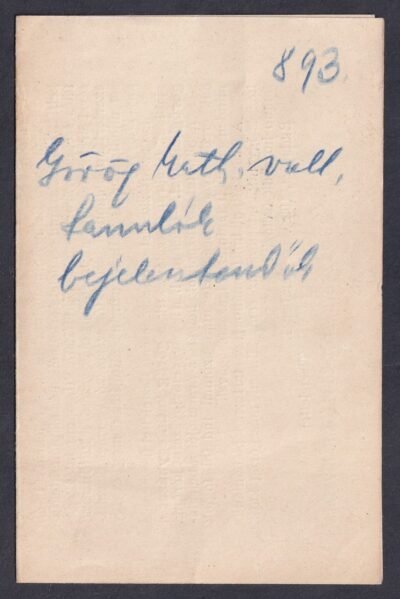 893.
Görög kath. vall,
tanulók
bejelentendők